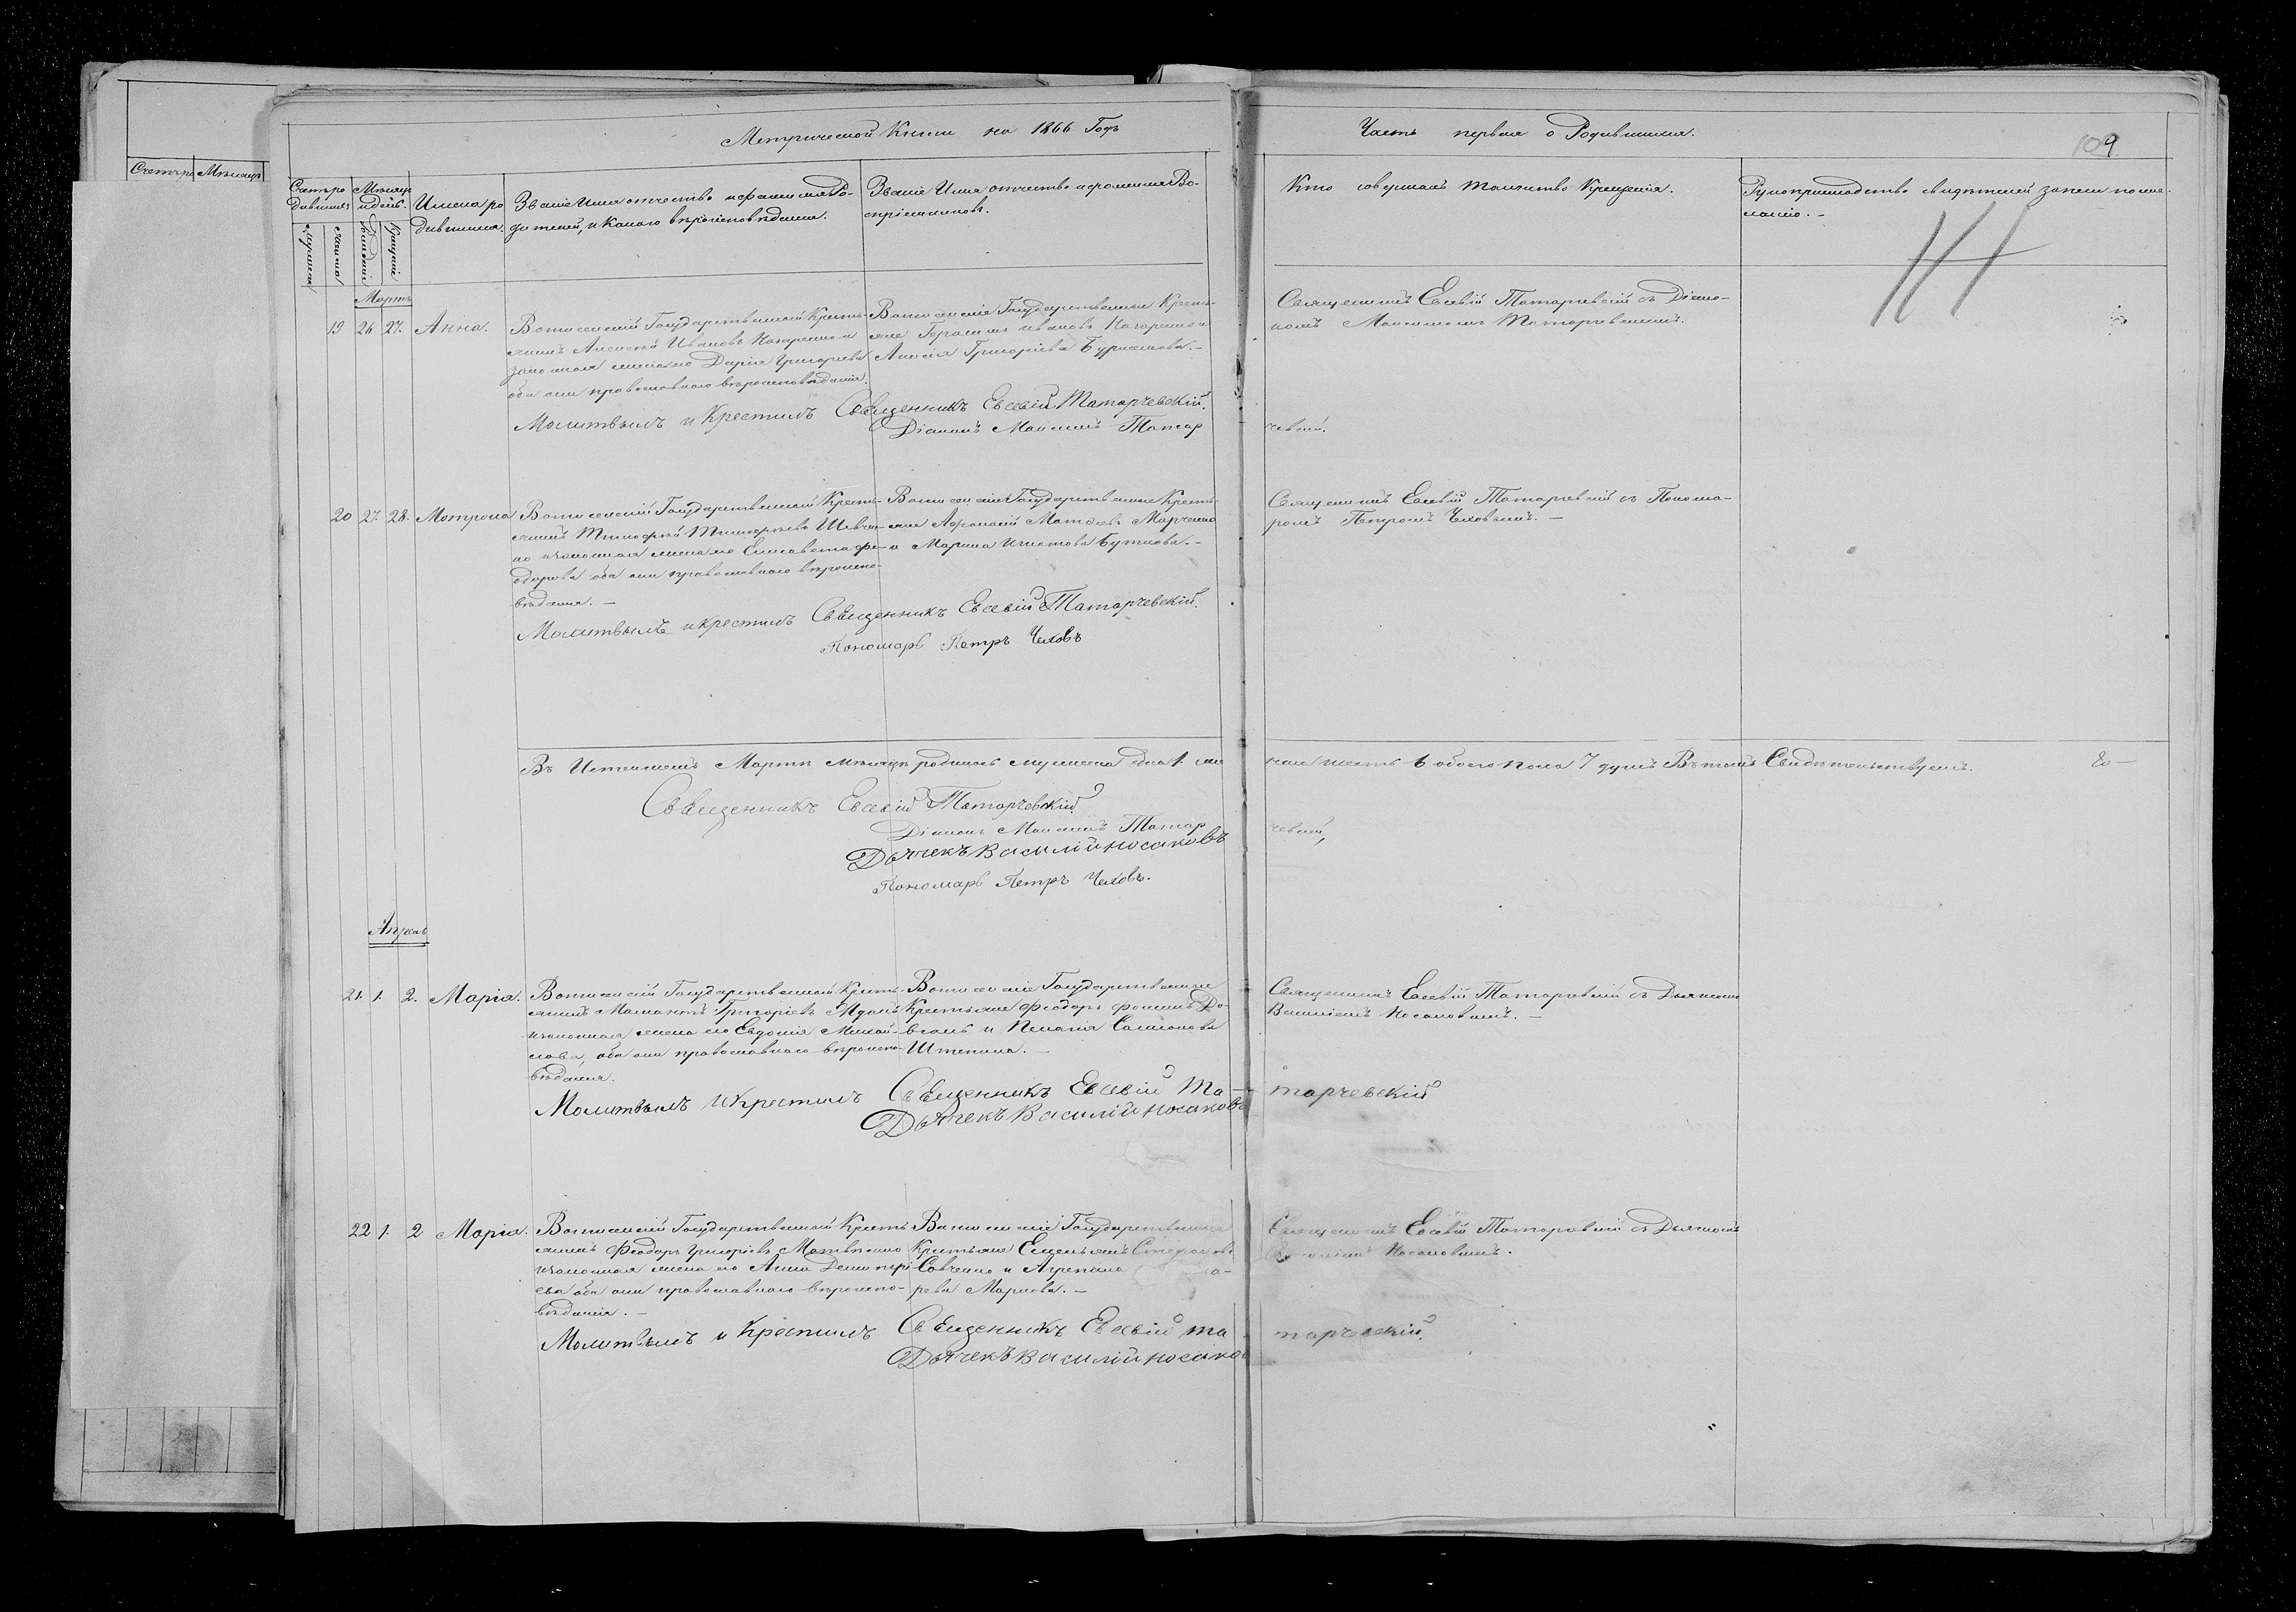 Метрической Книги на 1866 Годъ
Часть первая о Родившихся.
109
Счетъ ро
дившихся
Мѣсяцъ
и день.
Имена ро
дившихся.
Званіе Имя отчество и фамилія Ро-
дителей, и какого вѣроисповѣданія.
Званіе Имя отчество и фамилія Во-
спріемниковъ.
Кто совершалъ таинство Крещенія.
Рукоприкладство свидѣтелей записи по же-
ланію. -
Счетъ ро
Мѣсяцъ
Мартъ
19 26 27. Анна.
Государственный Кресть-
янинъ Алексѣй Ивановъ Назаренко и
законная жена его Дарія Григорьева
оба они православнаго вѣроисповѣданія.
Государственные Кресть-
яне Герасимъ Ивановъ Назаренко и
Григоріева
Священникъ Евсевій Татарчевскій съ Діако-
номъ Максимомъ Татарчевскимъ.
Молитвилъ и Крестилъ Священникъ Евсевій Татарчевскій.
Діаконъ Максимъ Татар
чевскій.
20 27. 28. Матрона
Государственный Кресть-
янинъ Тимофѣй Тимофѣевъ Шевчен-
ко и законная жена его Елисавета Фе-
одорова оба они православнаго вѣроиспо-
вѣданія. -
Государственные Кресть-
яне Афанасій Матвѣевъ Марченко
и Марина Игнатова
Священникъ Евсевій Татарчевскій съ Понома-
ремъ Петромъ Чеховымъ. -
Молитвилъ и крестилъ Священникъ Евсевій Татарчевскій.
Пономарь Петръ Чеховъ
Въ Истекшемъ Мартѣ мѣсяцѣ родилось мужеска одна 1. жен
ска шесть 6 обоего пола 7 душъ Въ томъ Свидѣтельствуемъ.
Священникъ Евсевій Татарчевскій
Діаконъ Максимъ Татар
чевскій,
Дьячекъ Василій Носаковъ
Пономарь Петръ Чеховъ.
Апрель
21. 1. 2. Марія.
Государственный Кресть-
янинъ Мамантъ Григоріевъ
и законная жена его Евдокія Михай-
лова, оба они православнаго вѣроиспо-
вѣданія.
Государственные
Крестьяне Феодоръ
и Пелагія
Священникъ Евсевій Татарчевскій съ Дьячкомъ
Василіемъ Носаковымъ. -
Молитвилъ и Крестилъ Священникъ Евсевій Та-
тарчевскій
Дьячекъ Василій Носаковъ
22 1. 2 Марія.
Государственный Кресть
янинъ Феодоръ Григоріевъ Матвѣенко
и законная жена его Анна Димитрі-
ева оба они православнаго вѣроиспо-
вѣданія. -
Государственные
Крестьяне Емельянъ Стефановъ
Савченко и Агрепина
Священникъ Евсевій Татарчевскій съ Дьячкомъ
Василіемъ Носаковымъ.
Молитвилъ и Крестилъ Священникъ Евсевій та
тарчевскій.
Дьячекъ Василій Носаков